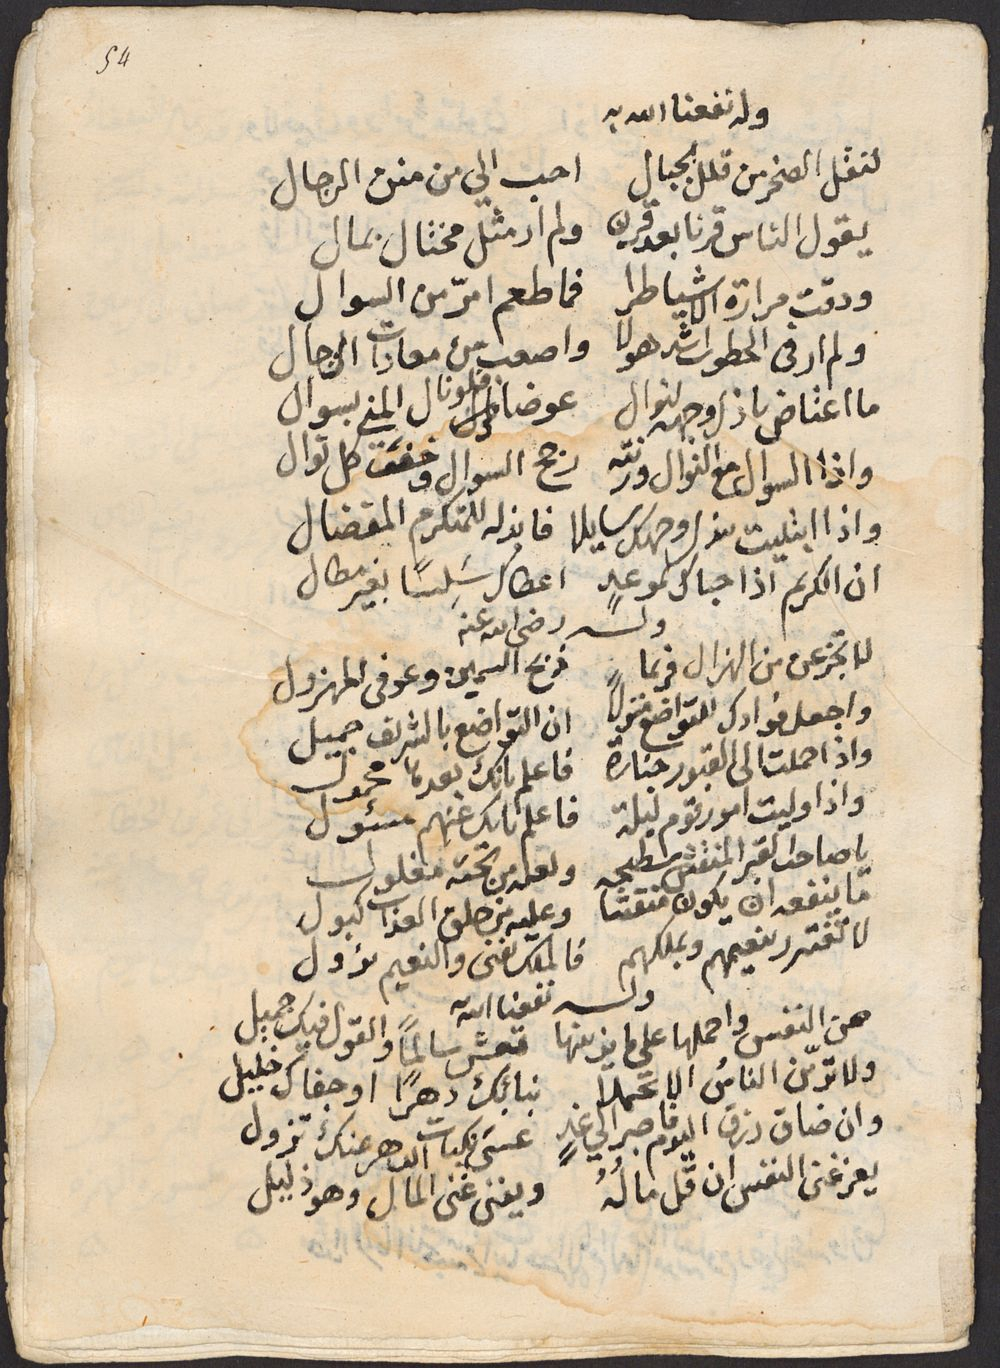 54
وله نفعنا الله به
لنقل الصخر من قلل الجبال احب الي من منن الرجال
يقول الناس قرنا بعد قرن ولم ار مثل مختال بمال
ودقت مرارة الاشيا طرا فما طعم امرّ من السوال
ولم ار فى الخطوب اشد هولا واصعب من معادات الرجال
ما اعتاض باذل وجهه لنوال عوضا ولو نال المنى بسوال
واذا السوال مع النوال وزنته رجح السوال وخفت كل نوال
واذا ابتليت ببذل وجهك سايلا فابذله للمتكرم المفضال
ان الكريم اذا حباك بموعدٍ اعطاك سَلِسًا بغير مطال
وله رضى الله عنه
لا تجزعن من الهزال فربما ذبح السمين وعوفى المهزول
واجعل فوادك للتواضع منزلاً ان التواضع بالشريف جميل
واذا حملت الى القبور جنازة فاعلم بانك بعدها محمول
واذا وليت امور قوم ليلة فاعلم بانك عنهم مسئول
يا صاحب القبر المنقش سطحه ولعله من تحته مغلول
ما ينفعه ان يكون منقشا وعليه من حلق العذاب كبول
لا تغترر بنعيمهم وبملكهم فالملك يفنى والنعيم يزول
وله نفعنا الله
صن النفس واحملها على ما يزينها تعش سالماً والقول فيك جميل
ولا تريّن الناسُ الا تجملا نبا بك دهرًا او جفاك خليل
وان ضاق رزق اليوم فاصبر الي غدٍ عسَى نكبات الدهر عنك تزول
يعز غنى النفس ان قل مالُهُ ويفنى غنى المال وهو ذليل